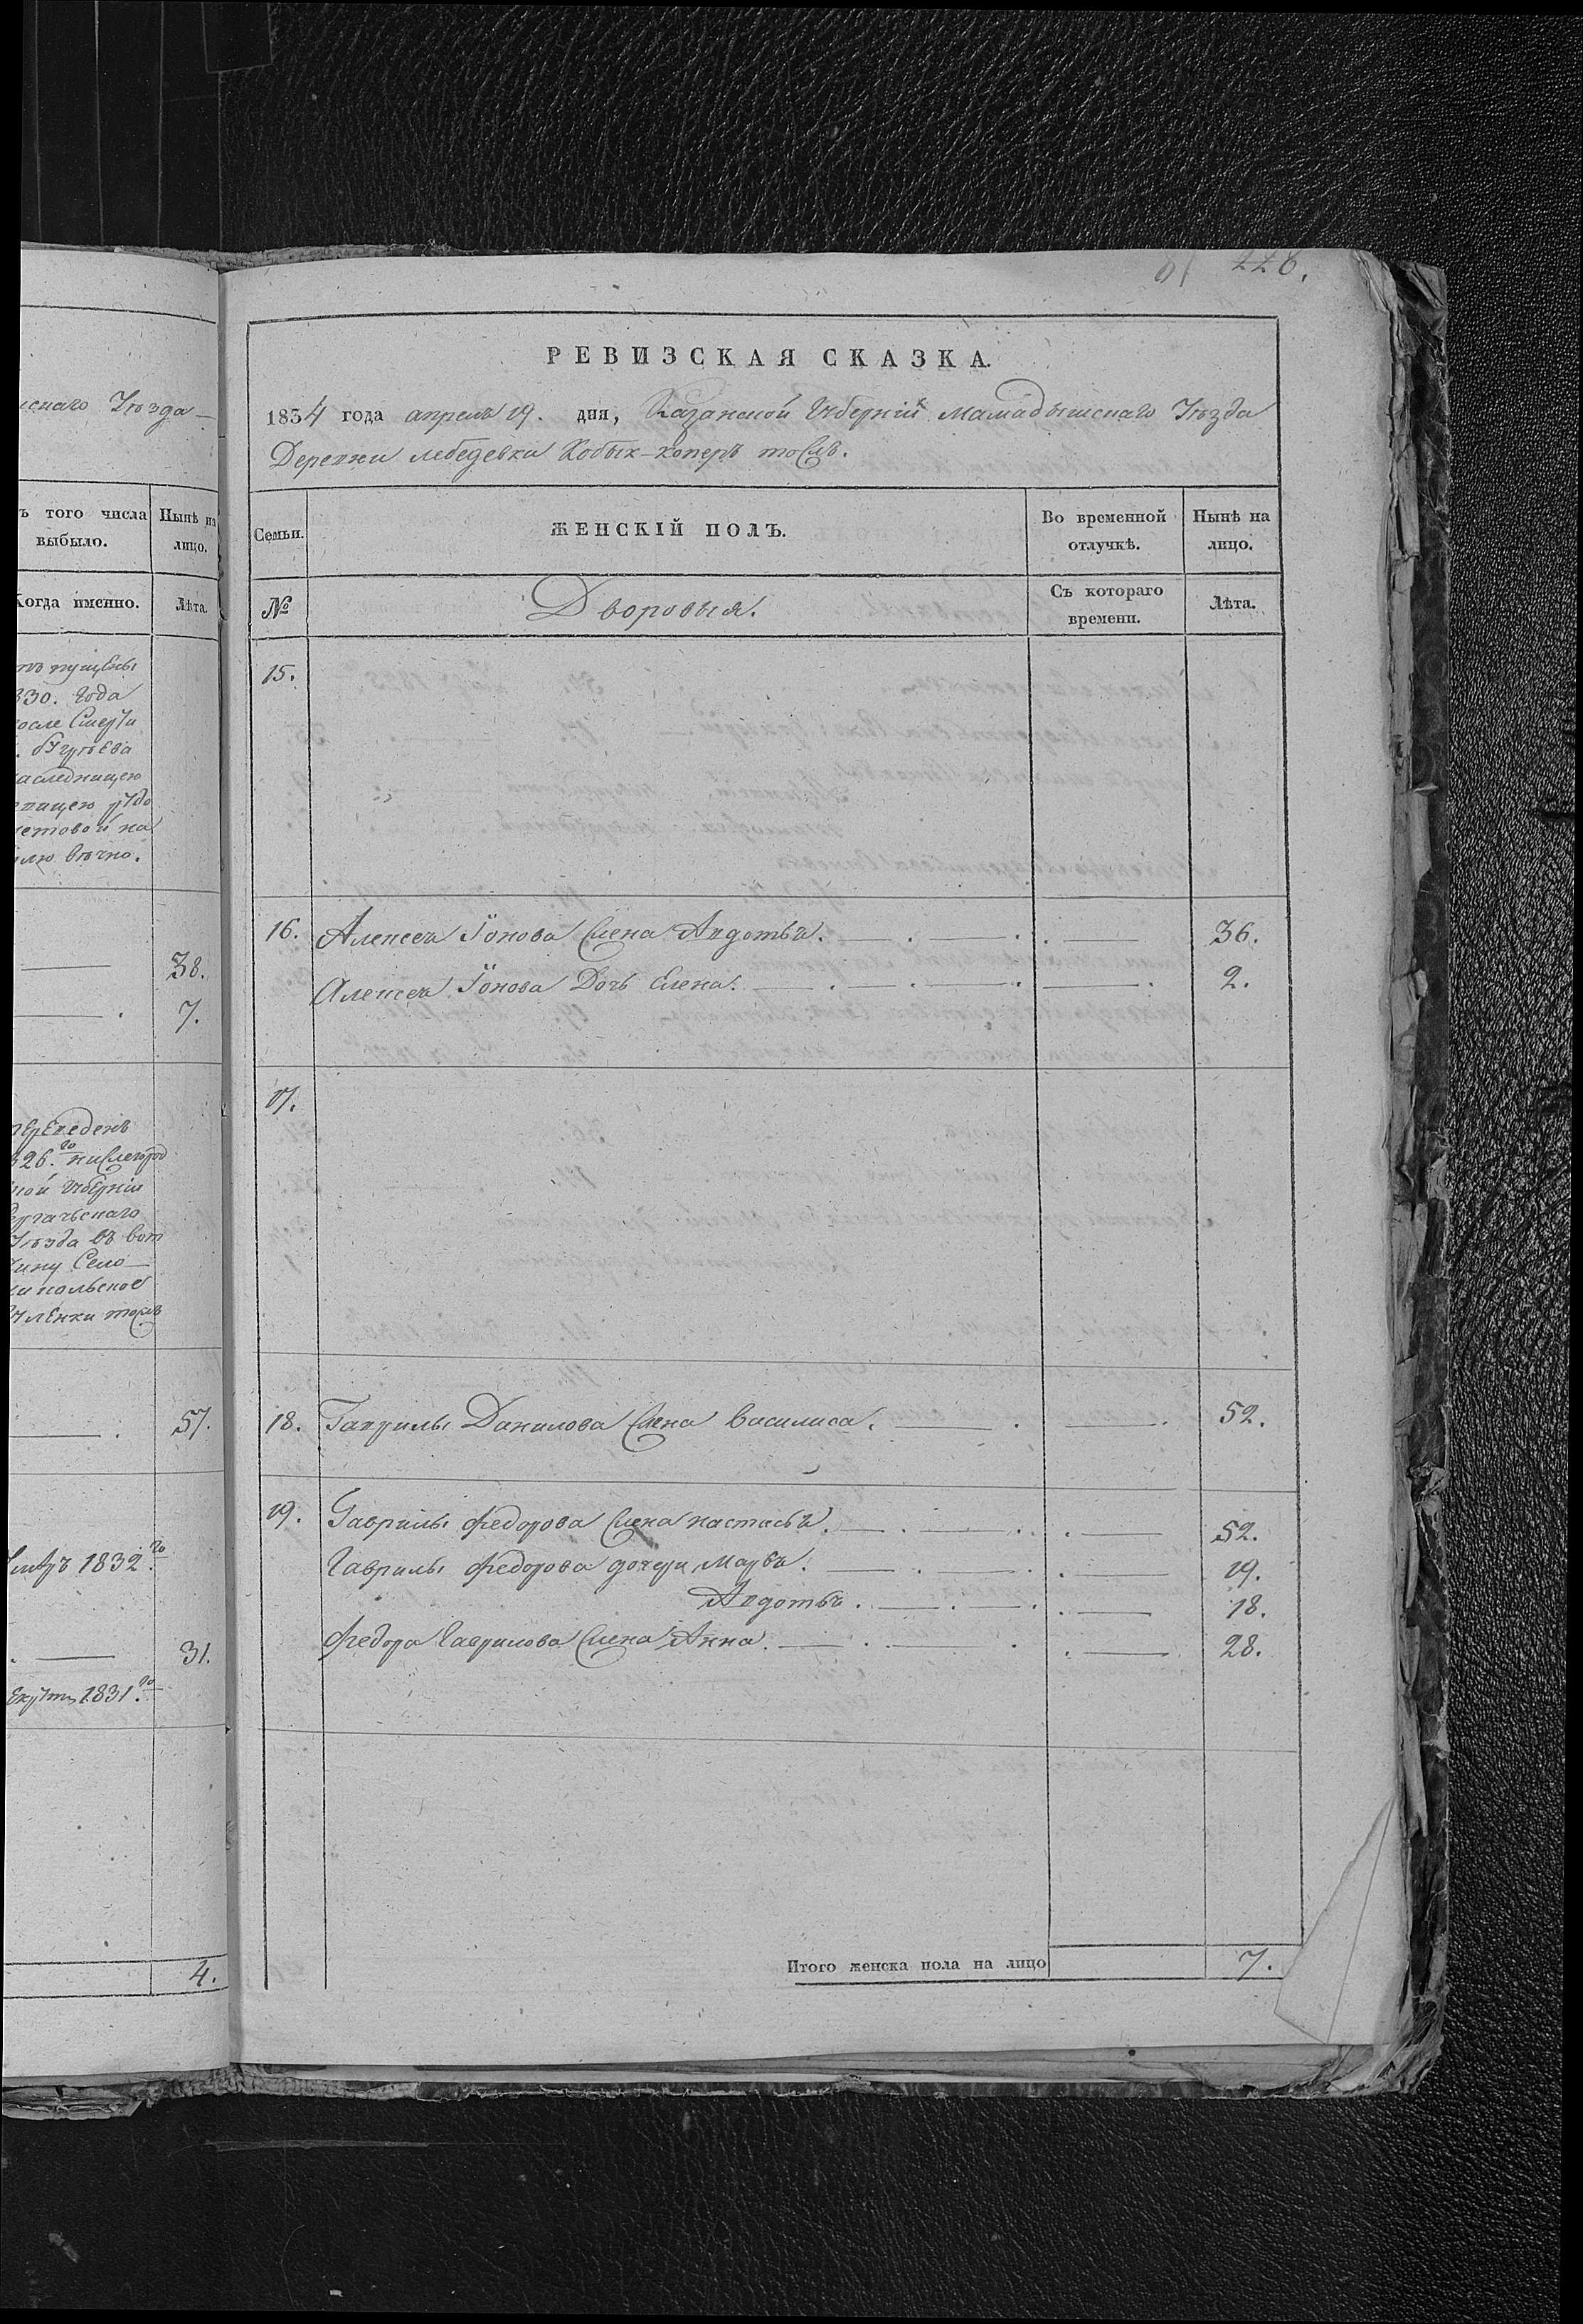 226.
скаго Уѣзда
ъ того числа
выбыло.
Нынѣ на
лицо.
Когда именно.
Лѣта.
тъ пущены
830. года
после Смерти
наследницею
летовой на
лю вѣчно.
38.
7.
переведенъ
826.го нижегород
ской Губернiи
Сергачьскаго
Уѣзда въ вот
чину Село
никольское
57.
1832.го
31.
1831.го
4.
РЕВИЗСКАЯ СКАЗКА.
1834 года апреля 19. дня, Казанской Губернiи Мамадышскаго Уѣзда
Деревни лебедевка Кобык-коперъ тожъ.
Семьи.
ЖЕНСКIЙ ПОЛЪ.
Во временной
отлучкѣ.
Нынѣ на
лицо.
№
Дворовыя.
Съ котораго
времени.
Лѣта.
15.
16. Алексея Iонова жена Авдотья. 36.
Алексея Iонова Дочь Елена. 2.
17.
18. Гаврилы Данилова жена Василиса. 52.
19. Гаврилы Федорова жена настасья. 52.
Гаврилы Федорова дочери, Марья. 19.
Авдотья. 18.
Федора Гаврилова жена Анна. 28.
Итого женска пола на лицо 7.